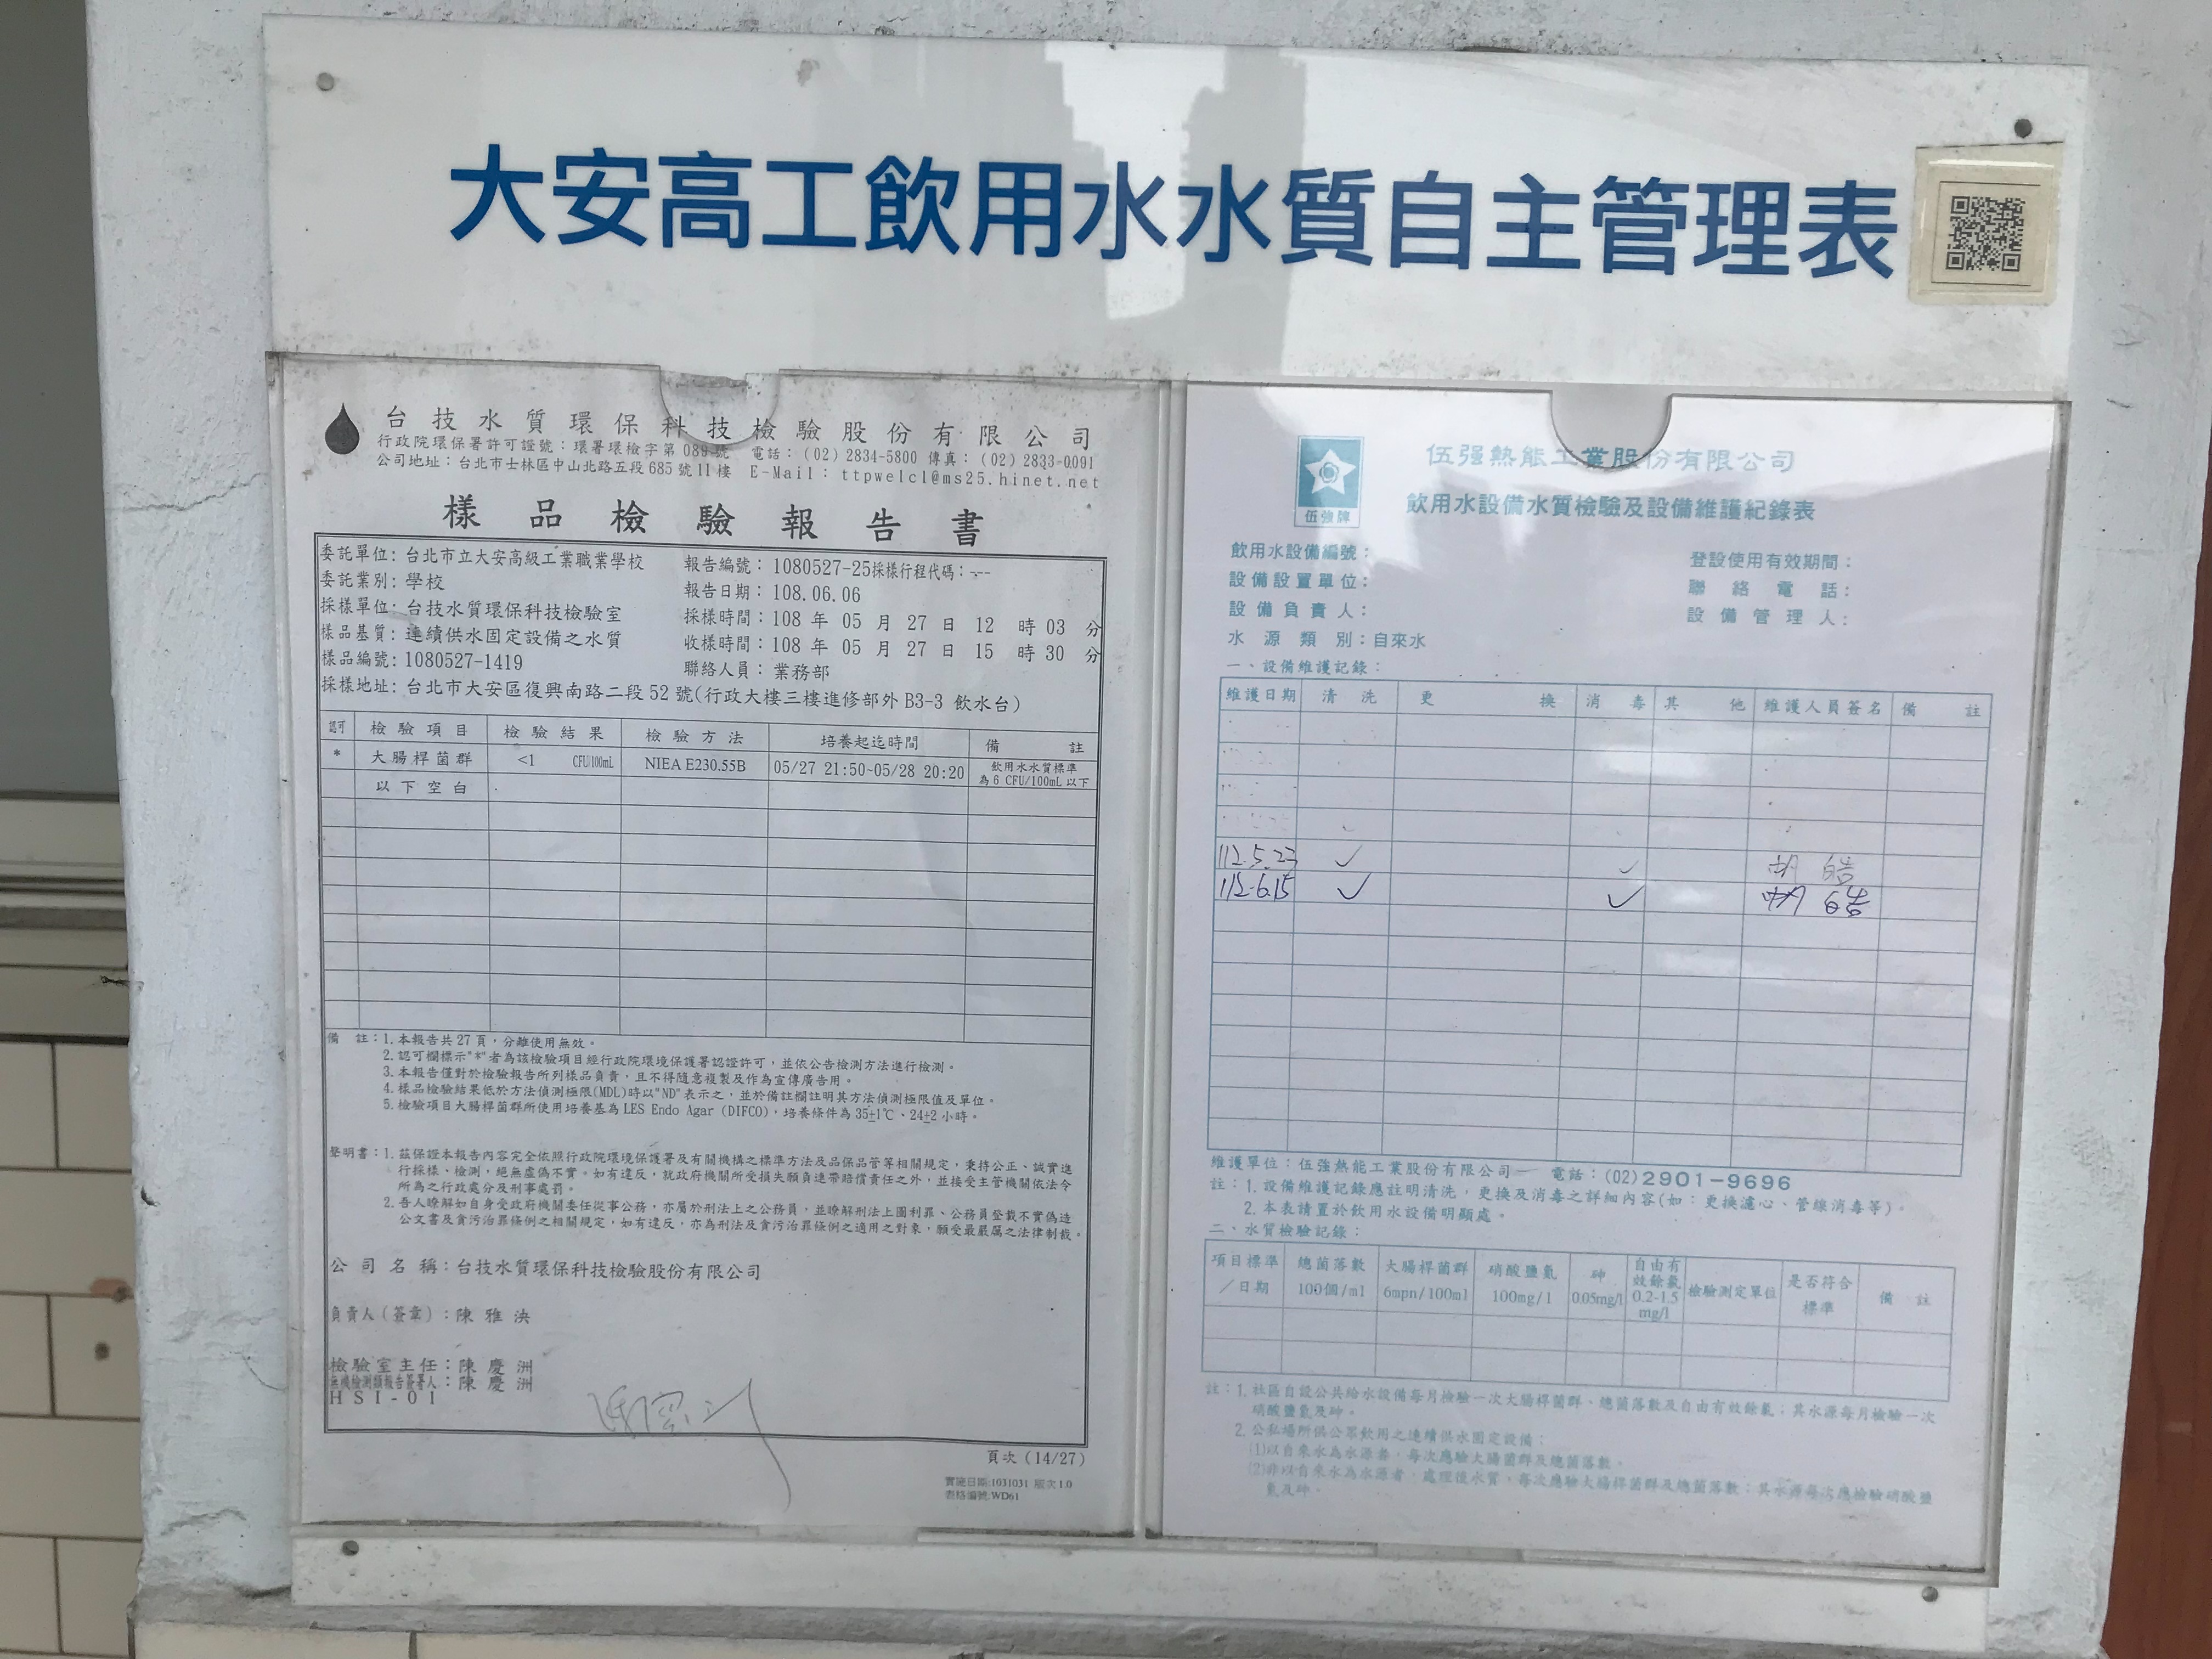 大安高工飲用水水質自主管理表
台技水質環保科技檢驗股份有限公司
行政院環保署許可證號：環署環檢字第089號 電話：(02) 2834-5800 傳真：(02) 2833-0091
公司地址：台北市士林區中山北路五段685號11樓 E-Mail：ttpwelcl@ms25.hinet.net
樣品檢驗報告書
委託單位：台北市立大安高級工業職業學校 報告編號：1080527-25採樣行程代碼：---
委託業別：學校 報告日期：108.06.06
採樣單位：台技水質環保科技檢驗室 採樣時間：108 年 05 月 27 日 12 時 03 分
樣品基質：連續供水固定設備之水質 收樣時間：108 年 05 月 27 日 15 時 30 分
樣品編號：1080527-1419 聯絡人員：業務部
採樣地址：台北市大安區復興南路二段52號(行政大樓三樓進修部外B3-3 飲水台)
認可 檢驗項目 檢驗結果 檢驗方法 培養起迄時間 備註
* 大腸桿菌群 <1 CFU/100mL NIEA E230.55B 05/27 21:50~05/28 20:20 飲用水水質標準為 6 CFU/100mL 以下
以下空白
備 註：1.本報告共27頁，分離使用無效。
2.認可欄標示"*"者為該檢驗項目經行政院環境保護署認證許可，並依公告檢測方法進行檢測。
3.本報告僅對於檢驗報告所列樣品負責，且不得隨意複製及作為宣傳廣告用。
4.樣品檢驗結果低於方法偵測極限(MDL)時以"ND"表示之，並於備註欄註明其方法偵測極限值及單位。
5.檢驗項目大腸桿菌群所使用培養基為 LES Endo Agar (DIFCO)，培養條件為 35±1℃、24±2 小時。
聲明書：1.茲保證本報告內容完全依照行政院環境保護署及有關機構之標準方法及品保品管等相關規定，秉持公正、誠實進
行採樣、檢測，絕無虛偽不實。如有違反，就政府機關所受損失願負連帶賠償責任之外，並接受主管機關依法令
所為之行政處分及刑事處罰。
2.吾人瞭解如自身受政府機關委任從事公務，亦屬於刑法上之公務員，並瞭解刑法上圖利罪、公務員登載不實偽造
公文書及貪污治罪條例之相關規定，如有違反，亦為刑法及貪污治罪條例之適用之對象，願受最嚴厲之法律制裁。
公司名稱：台技水質環保科技檢驗股份有限公司
負責人(簽章)：陳雅泱
檢驗室主任：陳慶洲
無機檢測類報告簽署人：陳慶洲
HSI-01
頁次 (14/27)
實施日期:1031031 版次1.0
表格編號:WD61
伍強牌
伍强熱能工業股份有限公司
飲用水設備水質檢驗及設備維護紀錄表
飲用水設備編號： 登設使用有效期間：
設備設置單位： 聯絡電話：
設備負責人： 設備管理人：
水源類別：自來水
一、設備維護記錄：
維護日期 清洗 更換 消毒 其他 維護人員簽名 備註
112.5.23 ✓ ✓ 胡 皓
112.6.15 ✓ ✓ 胡 皓
維護單位：伍強熱能工業股份有限公司 電話：(02)2901-9696
註：1.設備維護記錄應註明清洗，更換及消毒之詳細內容(如：更換濾心、管線消毒等)。
2.本表請置於飲用水設備明顯處。
二、水質檢驗記錄：
項目標準／日期 總菌落數 100個/ml 大腸桿菌群 6mpn/100ml 硝酸鹽氮 100mg/l 砷 0.05mg/l 自由有效餘氯 0.2-1.5 mg/l 檢驗測定單位 是否符合標準 備註
註：1.社區自設公共給水設備每月檢驗一次大腸桿菌群、總菌落數及自由有效餘氯；其水源每月檢驗一次
硝酸鹽氮及砷。
2.公私場所供公眾飲用之連續供水固定設備：
(1)以自來水為水源者，每次應驗大腸菌群及總菌落數。
(2)非以自來水為水源者，處理後水質，每次應驗大腸桿菌群及總菌落數；其水源每次應檢驗硝酸鹽
氮及砷。